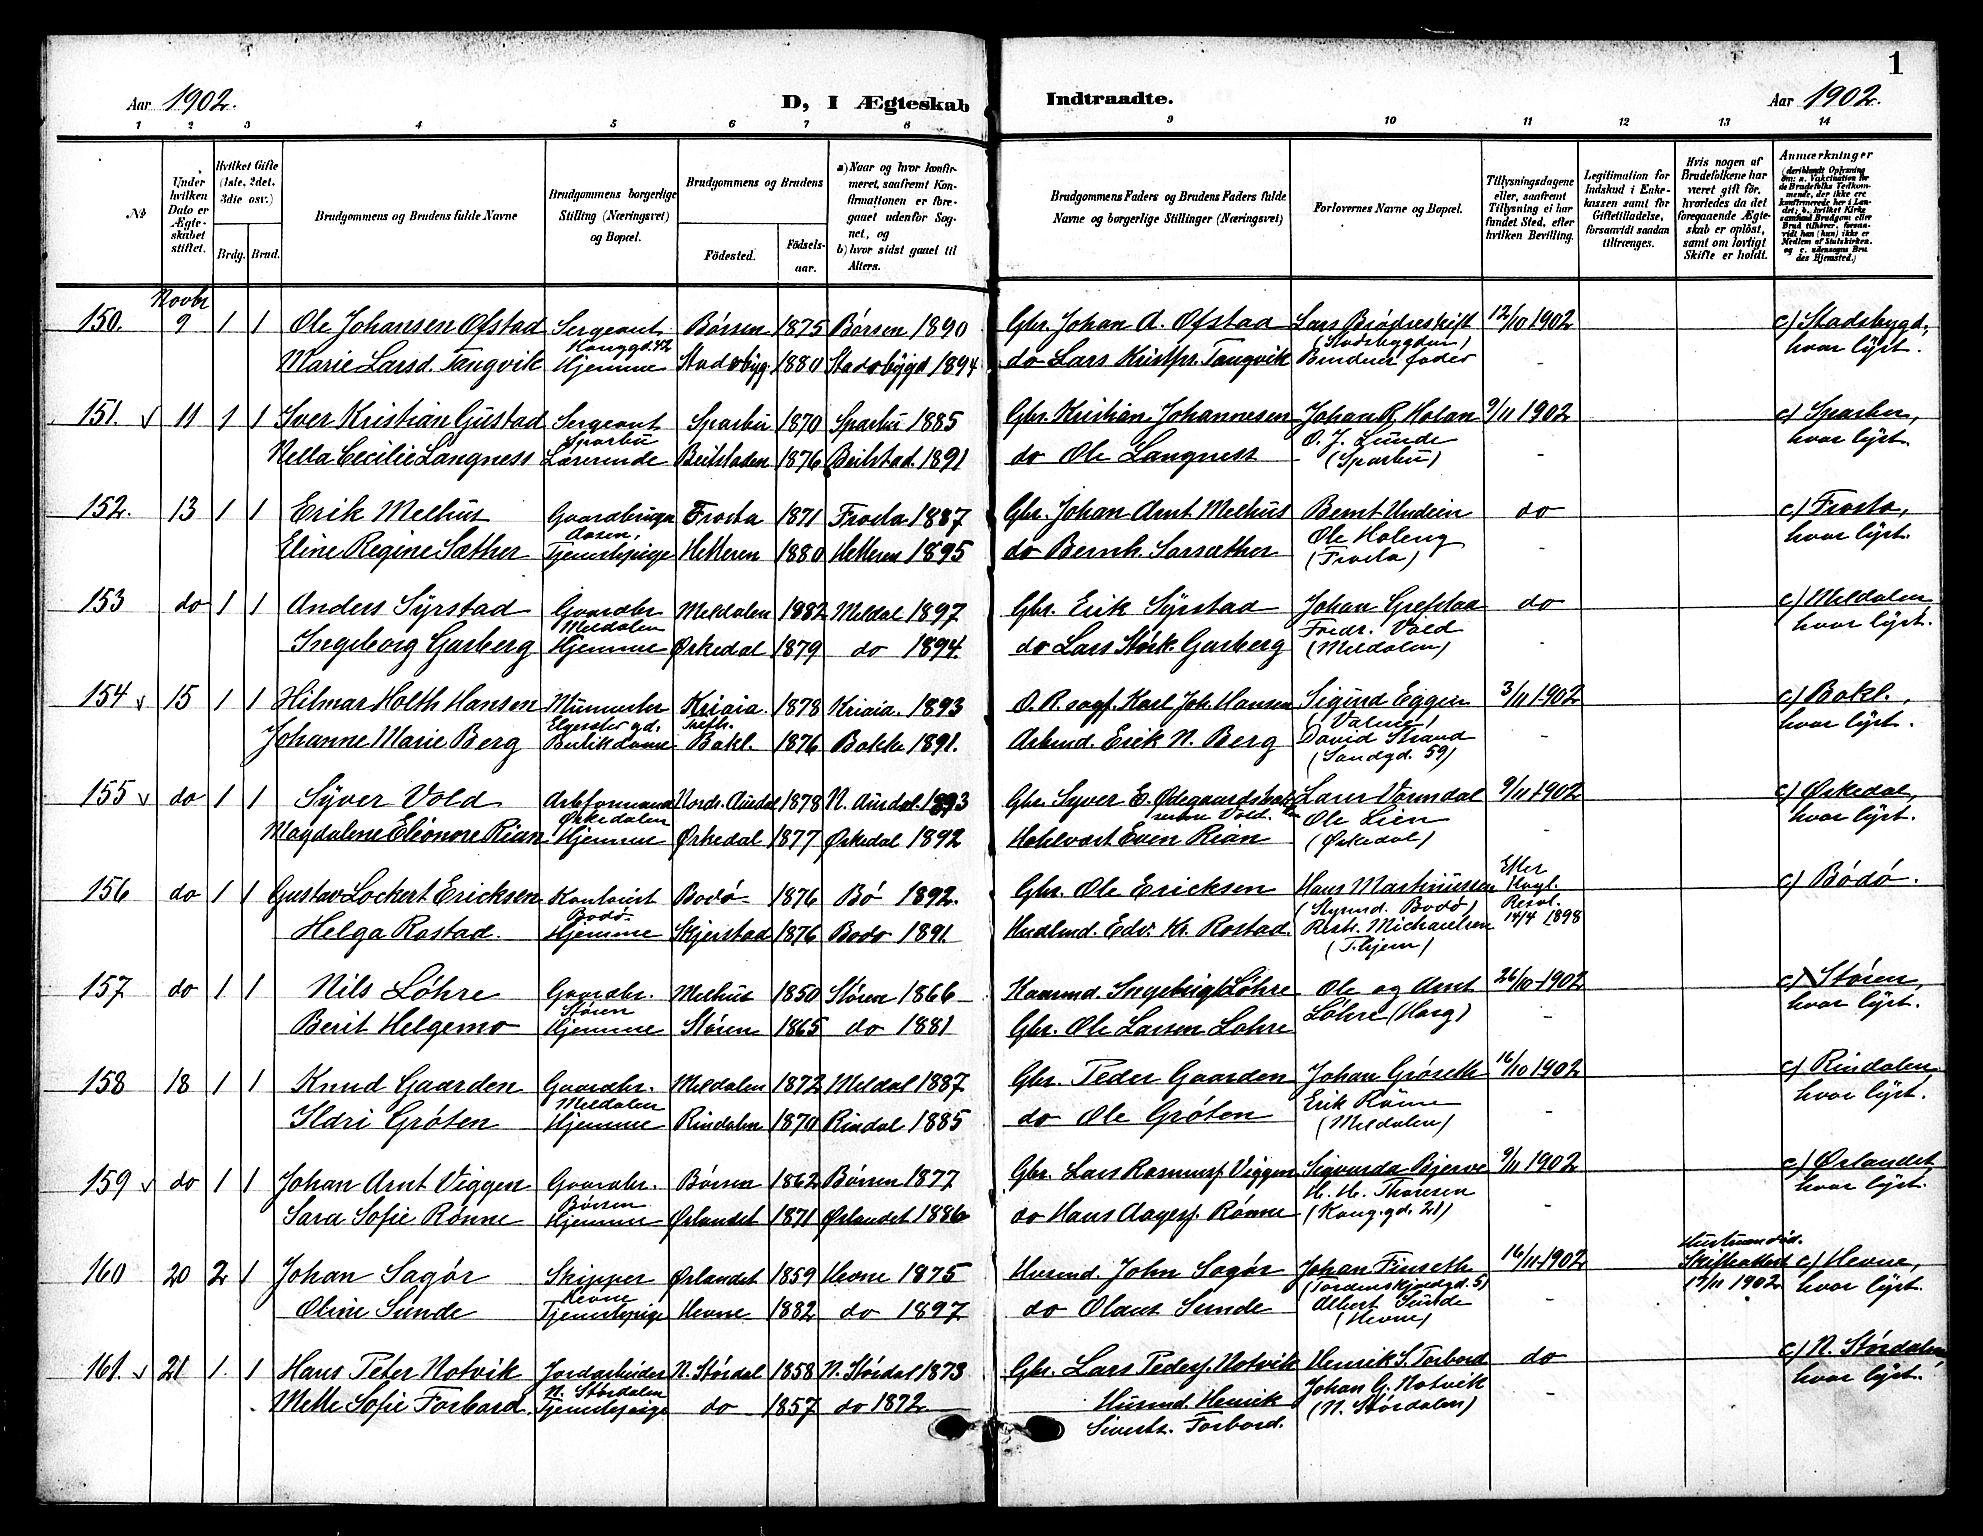 1
Aar 1902.
D, I Ægteskab
Indtraadte.
Aar 1902.
1 2 3 4 5 6 7 8 9 10 11 12 13 14
№
Under hvilken Dato er Ægteskabet stiftet.
Hvilket Gifte (1ste, 2det, 3die osv.)
Brdg. Brud.
Brudgommens og Brudens fulde Navne
Brudgommens borgerlige Stilling (Næringsvei) og Bopæl.
Brudgommens og Brudens
Fødested.
Fødselsaar.
a) Naar og hvor konfirmeret, saafremt Konfirmationen er foregaaet udenfor Sognet, og
b) hvor sidst gaaet til Alters.
Brudgommens Faders og Brudens Faders fulde Navne og borgerlige Stillinger (Næringsvei)
Forlovernes Navne og Bopæl.
Tillysningsdagene eller, saafremt Tillysning ei har fundet Sted, efter hvilken Bevilling.
Legitimation for Indskud i Enkekassen samt for Giftetilladelse, forsaavidt saadan tiltrænges.
Hvis nogen af Brudefolkene har været gift før, hvorledes da det foregaaende Ægteskab er opløst, samt om lovligt Skifte er holdt.
Anmærkninger
(deriblandt Oplysning om: a. Vakcination for de Brudefolks Vedkommende, der ikke ere konfirmerede her i Landet; b. hvilket Kirkesamfund Brudgom eller Brud tilhører, forsaavidt han (hun) ikke er Medlem af Statskirken, og c. udensogns Brudes Hjemsted.)
Novbr
150. 9 1 1 Ole Johansen Ofstad Sergeant Børsen 1875 Børsen 1890 Gbr. Johan A. Ofstad Lars Brødreskift 12/10 1902 c) Stadsbygd,
Konggd. 42 (Stadsbygden) hvor lyst.
Marie Larsd. Tangvik Hjemme Stadsbyg 1880 Stadsbygd 1894 do Lars Kristpr. Tangvik Brudens fader -
151. 11 1 1 Iver Kristian Gustad Sergeant Sparbu 1870 Sparbu 1885 Gbr. Kristian Johannesen Johan R. Holan 9/11 1902 c) Sparbu,
Sparbu O. J. Lunde hvor lyst.
Nella Cecilie Langness Lærerinde Beitstaden 1876 Beitstad 1891 do Ole Langness (Sparbu) -
152. 13 1 1 Erik Melhus Gaardbruger Frosta 1871 Frosta 1887 Gbr. Johan Arnt Melhus Bernt do c) Frosta,
Aasen, Ole hvor lyst.
Eline Regine Sæther Tjenestepige Hitteren 1880 Hitteren 1895 do Bernh. (Frosta) -
153 do 1 1 Anders Syrstad Gaardbr Meldalen 1882 Meldal 1897 Gbr. Erik Syrstad Johan Grefstad do c) Meldalen
Meldalen Fredr. Vold hvor lyst.
Ingeborg Garberg Hjemme Ørkedal 1879 do 1894. do Lars Størk. Garberg (Meldalen) -
154 15 1 1 Hilmar Holth Hansen Murmester Kriaia. 1878 Kriaia. 1893 Karl Joh. Hansen Sigurd Eggen 3/11 1902 c) Bakl.,
hvor lyst.
Johanne Marie Berg Butikdame Bakl. 1876 Bakke 1891. Arbmd. Erik N. Berg David Strand -
(Sandgd. 59)
155 do 1 1 Syver Vold Arbformand Nordr. Aurdal 1878 N. Aurdal. 1893 Gbr. Syver E. Lars Vormdal 9/11 1902 c) Ørkedal,
Ørkedalen Ole Lien hvor lyst.
Magdalene Eleonore Rian Hjemme Ørkedal 1877 Ørkedal 1892 Even Rian (Ørkedal) -
156 do 1 1 Gustav Lockert Ericksen Kontorist Bodø 1876 Bø 1892. Gbr. Ole Ericksen Hans Martinussen Efter Kngl. Resol. 14/4 1898 c) Bodø.
Bodø (Styrmd. Bodø)
Helga Rostad. Hjemme Skjerstad 1876 Bodø 1891. Hndlmd. Edv. Kr. Rostad. Michaelsen
(T.hjem)
157 do 1 1 Nils Løhre Gaardbr. Melhus 1850 Støren 1866 Kaarmd. Ingebrigt Løhre Ole og Arnt 26/10 1902 c) Støren,
Støren Løhre (Horg) hvor lyst.
Berit Helgemo Hjemme Støren 1865 do 1881 Gbr. Ole Larsen Løhre -
158 18 1 1 Knud Gaarden Gaardbr. Meldalen 1872 Meldal 1887 Gbr. Peder Gaarden Johan Grøseth 16/10 1902 c) Rindalen
Meldalen Erik hvor lyst.
Ildri Grøten Hjemme Rindalen 1870 Rindal 1885 do Ole Grøten (Meldalen) -
159 do 1 1 Johan Arnt Viggen Gaardbr. Børsen 1862 Børsen 1877 Gbr. Lars Rasmusf. Viggen Sigvarda Bjerve 9/11 1902 c) Ørlandet,
Børsen H. H. Thoresen hvor lyst.
Sara Sofie Rønne Hjemme Ørlandet 1871 Ørlandet 1886 do Hans Aagesf. Rønne (Kong.gd. 21) -
160 20 2 1 Johan Sagør Skipper Ørlandet 1859 Hevne 1875 Husmd. John Sagør Johan Finseth 16/11 1902 Hustruen død. Skifteattest 11/11 1902 c) Hevne,
Hevne (Tordenskjoldgd. 5) hvor lyst.
Oline Sunde Tjenestepige Hevne 1882 do 1897 do Olaus Sunde Albert Sunde -
(Hevne)
161. 21 1. 1 Hans Peter Notvik Jordarbeider N. Stördal 1858 N. Stördal 1873 Gbr. Lars Pedersf. Notvik Henrik S. Forbord do c) N. Stördalen
N. Stördalen Johan G. Notvik hvor lyst.
Mette Sofie Forbord. Tjenestepige do 1857 do 1872 Husmd. Henrik (N. Stördalen) -
Sivertz. Forbord.